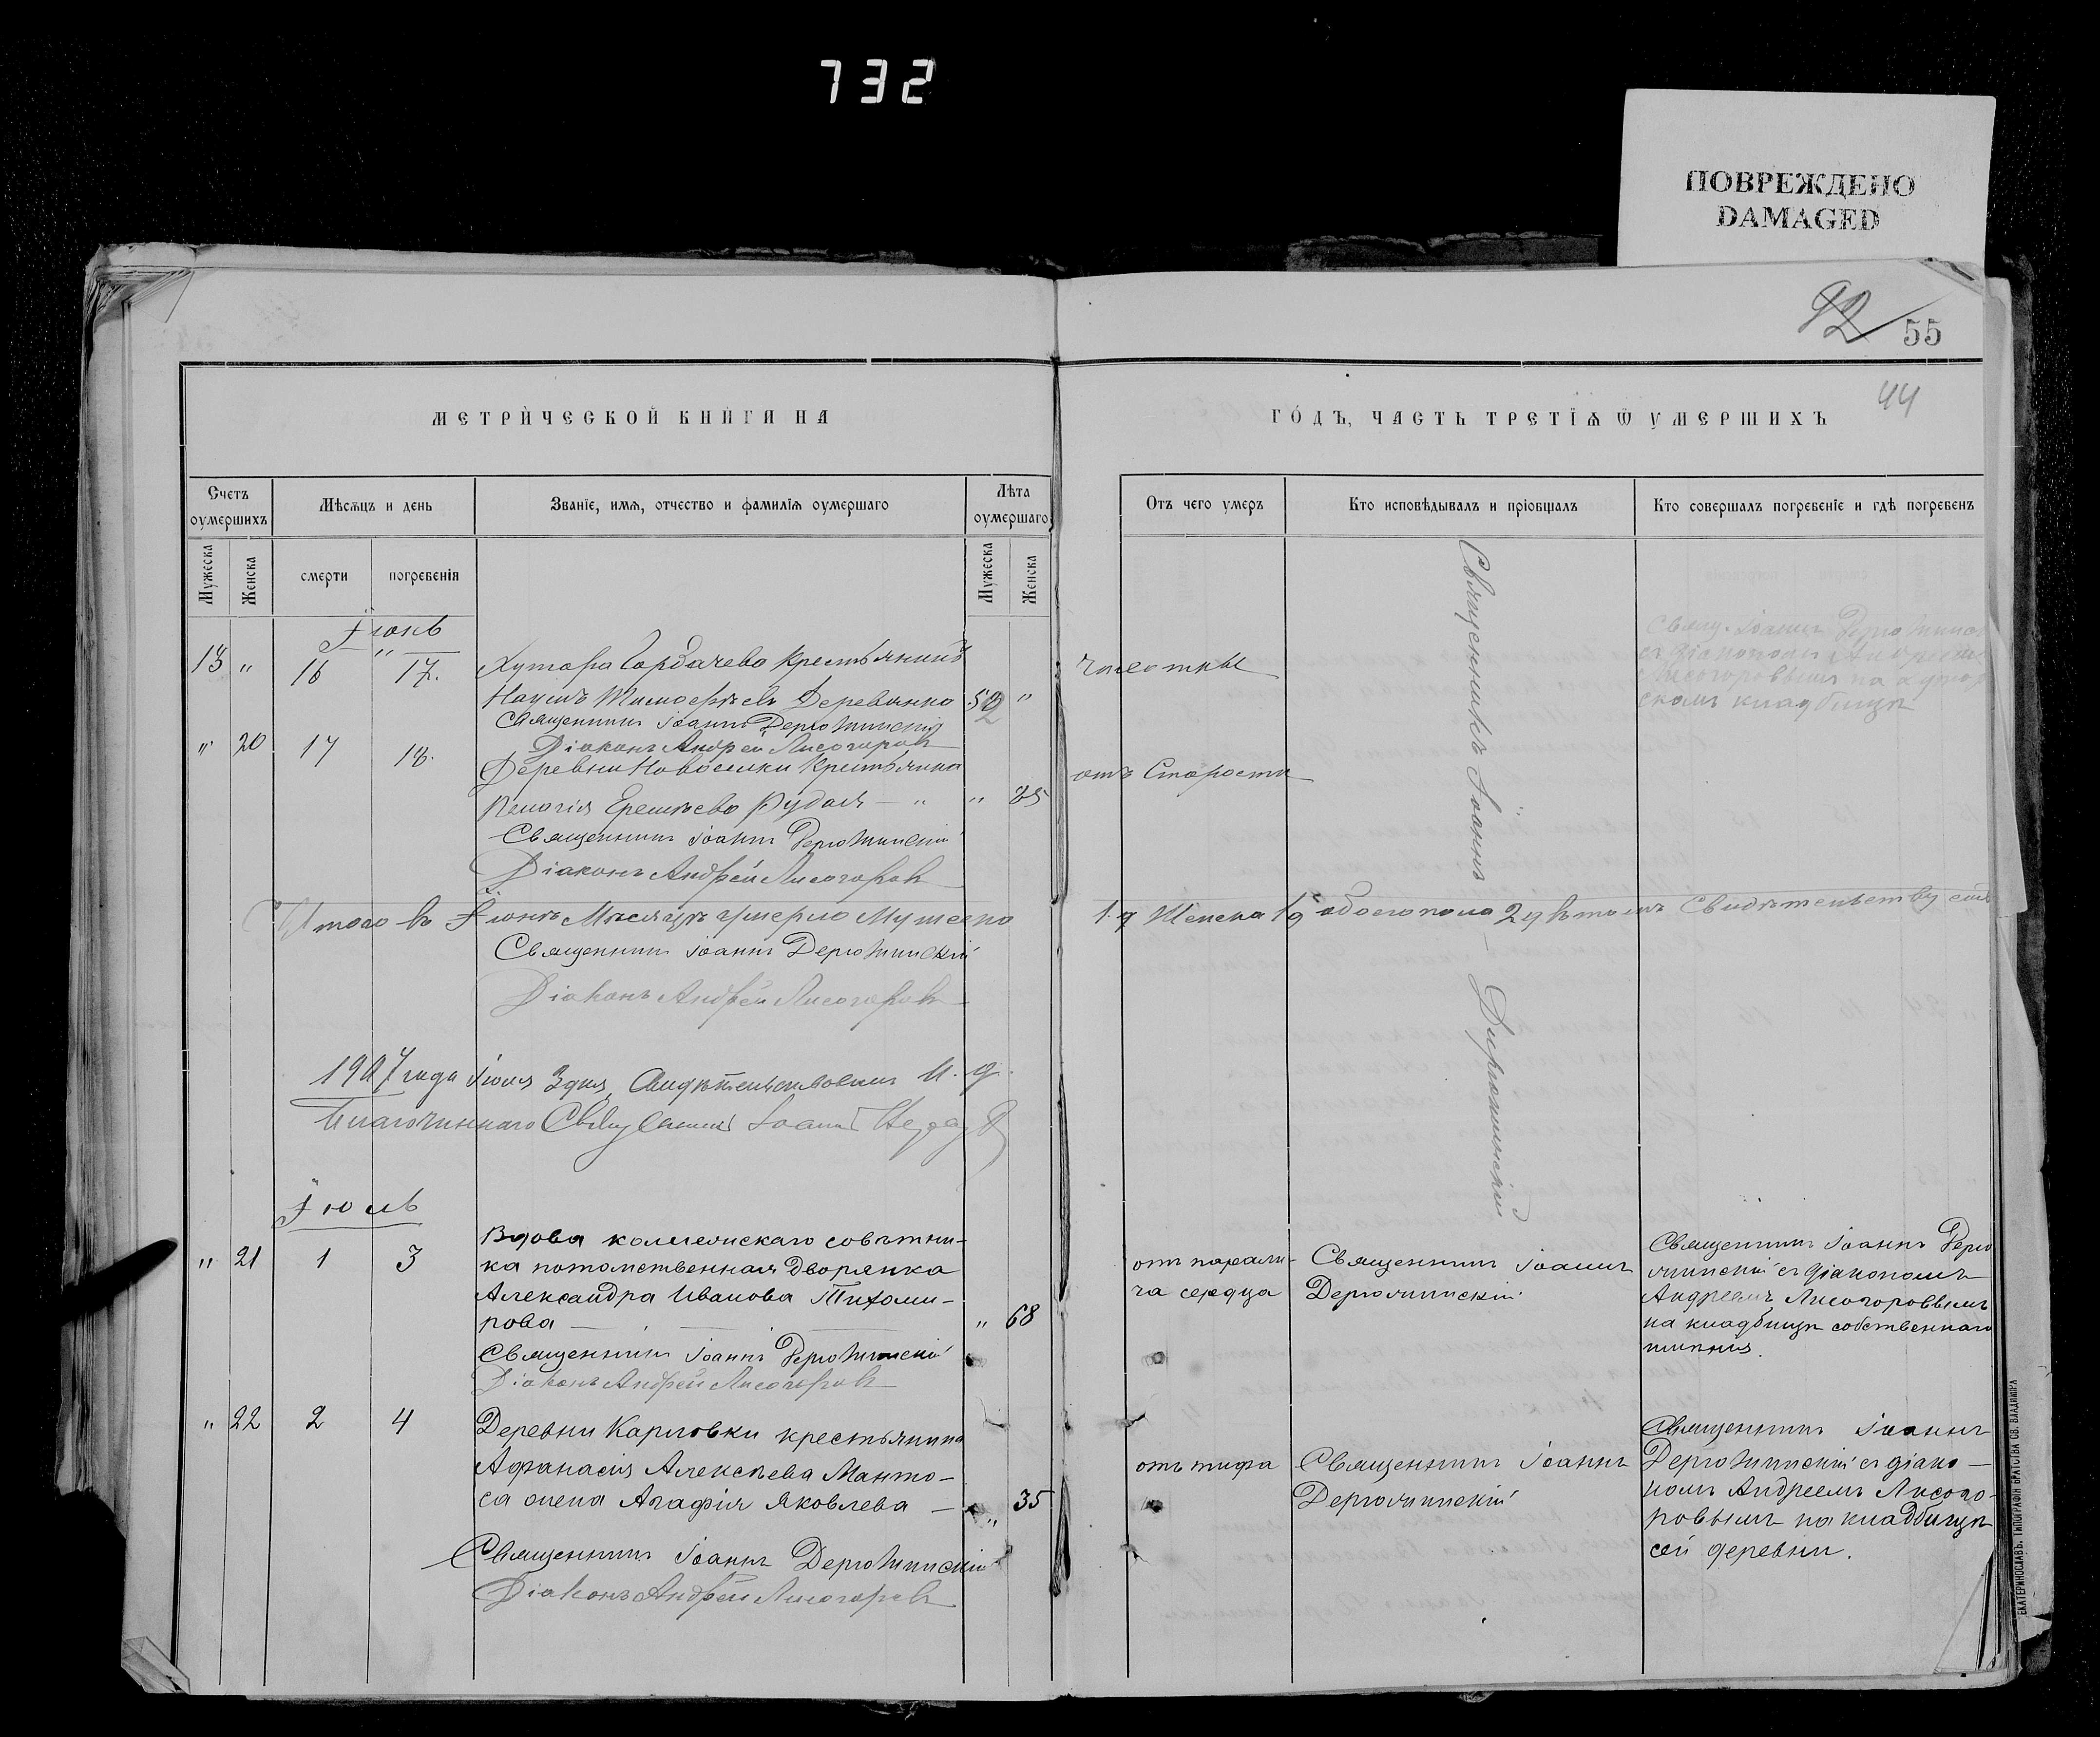 732
ПОВРЕЖДЕНО
DAMAGED
92
55
44
МЕТРИЧЕСКОЙ КНИГИ НА
ГОДЪ, ЧАСТЬ ТРЕТІѦ Ѿ УМЕРШИХЪ
Счетъ оумершихъ
Мѣсѧцъ и день
Званіе, имѧ, отчество и фамиліѧ оумершаго
Лѣта оумершаго
Отъ чего умеръ
Кто исповѣдывалъ и пріобщалъ
Кто совершалъ погребеніе и гдѣ погребенъ
Мужеска
Женска
смерти
погребеніѧ
Мужеска
Женска
Іюнь
13 " 16 17. Хутора Горбачева крестьянинъ
Наумъ Тимофѣевъ Деревянко 52 " чахотки
Священникъ Іоаннъ Дерюжинскій
Діаконъ Андрей Лисогоровъ
Свящ. Іоаннъ Дерюжинск
съ діакономъ Андреем
Лисогоровымъ на хутор
скомъ кладбищѣ
" 20 17 18. Деревни Новоселки крестьянка
Пелагія Еремѣева Рудая — " " 85 отъ старости
Священникъ Іоаннъ Дерюжинскій
Діаконъ Андрей Лисогоровъ
Священникъ Іоаннъ — Дерюжинскій
Итого въ Іюнѣ мѣсяцѣ умерло мужеска
женска обоего пола въ томъ свидѣтельствуемъ
Священникъ Іоаннъ Дерюжинскій
Діаконъ Андрей Лисогоровъ
1907 года Іюля 3 дня, свидѣтельствовалъ И. д.
Благочиннаго Священникъ Іоаннъ
Іюль
" 21 1 3 Вдова коллежскаго совѣтни-
ка потомственная дворянка
Александра Иванова Тихоми-
рова — " 68
Священникъ Іоаннъ Дерюжинскій
Діаконъ Андрей Лисогоровъ
отъ парали-
ча сердца
Священникъ Іоаннъ
Дерюжинскій
Священникъ Іоаннъ Дерю
жинскій съ діакономъ
Андреемъ Лисогоровымъ
на кладбищѣ собственнаго
имѣнія.
" 22 2 4 Деревни Карловки крестьянина
Афанасія Алексѣева Манто-
са жена Агафія Яковлева — " 35
Священникъ Іоаннъ Дерюжинскій
Діаконъ Андрей Лисогоровъ
отъ тифа
Священникъ Іоаннъ
Дерюжинскій
Священникъ Іоаннъ
Дерюжинскій съ діако —
номъ Андреемъ Лисого-
ровымъ на кладбищѣ
сей деревни.
ЕКАТЕРИНОСЛАВЪ. ТИПОГРАФІЯ БРАТСТВА СВ. ВЛАДИМІРА